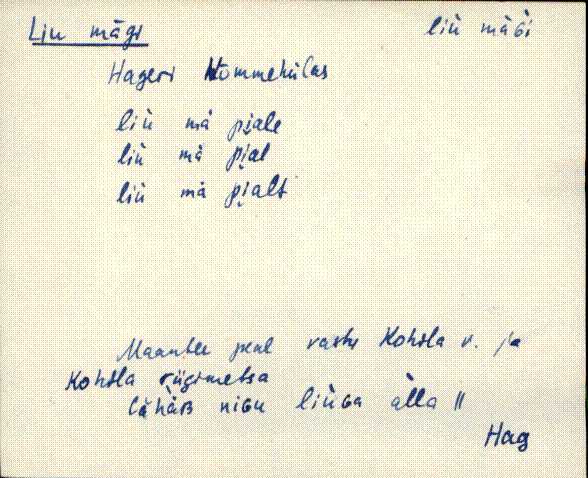 Liu mägi
liù mäɢi
Hageri Nommekülas
liù mä pi̭ale
liù mä pi̭al
liù mä pi̭alt
Maantee peal vastu Kohila v. ja
Kohila riigimetsa
lähäʙ niɢu liùɢa alla ॥
Hag